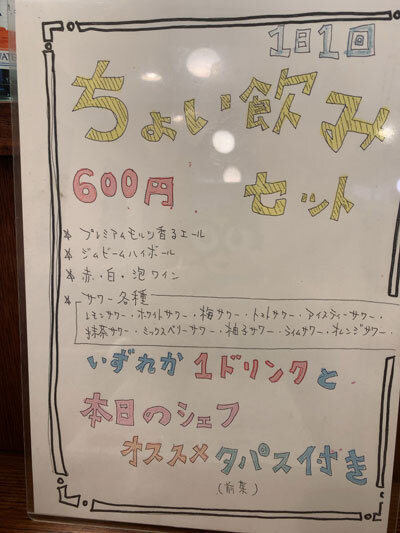 1日1回
ちょい飲み
600円 セット
* プレミアムモルツ香るエール
* ジムビームハイボール
* 赤・白・泡ワイン
* サワー各種
レモンサワー・ホワイトサワー・梅サワー・トマトサワー・アイスティーサワー・
抹茶サワー・ミックスベリーサワー・柚子サワー・ライムサワー・オレンジサワー
いずれか1ドリンクと
本日のシェフ
オススメタパス付き
(前菜)